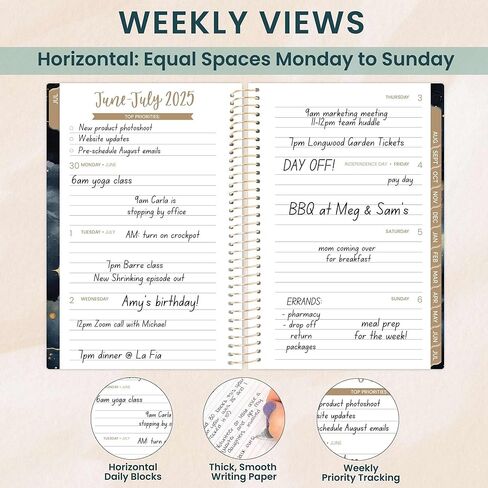 WEEKLY VIEWS
Horizontal: Equal Spaces Monday to Sunday
JUL
June-July 2025
TOP PRIORITIES:
New product photoshoot
Website updates
Pre-schedule August emails
30 MONDAY • JUNE
6am yoga class
9am Carla is
stopping by office
1 TUESDAY • JULY
AM: turn on crockpot
7pm Barre class
New Shrinking episode out
2 WEDNESDAY
Amy's birthday!
12pm Zoom call with Michael
7pm dinner @ La Fia
THURSDAY 3
9am marketing meeting
11-12pm team huddle
7pm Longwood Garden Tickets
DAY OFF!
INDEPENDENCE DAY • FRIDAY 4
pay day
BBQ at Meg & Sam's
SATURDAY 5
mom coming over
for breakfast
SUNDAY 6
ERRANDS:
- pharmacy
- drop off
return
packages
meal prep
for the week!
AUG
SEPT
OCT
NOV
DEC
JAN
FEB
MAR
APR
MAY
JUN
JUL
MONDAY • JUNE
6am yoga class
9am Carla
stopping by
TUESDAY • JULY
AM: turn
Horizontal
Daily Blocks
Thick, Smooth
Writing Paper
TOP PRIORITIES
product photoshoot
site updates
schedule August emails
MONDAY • JUNE
Weekly
Priority Tracking